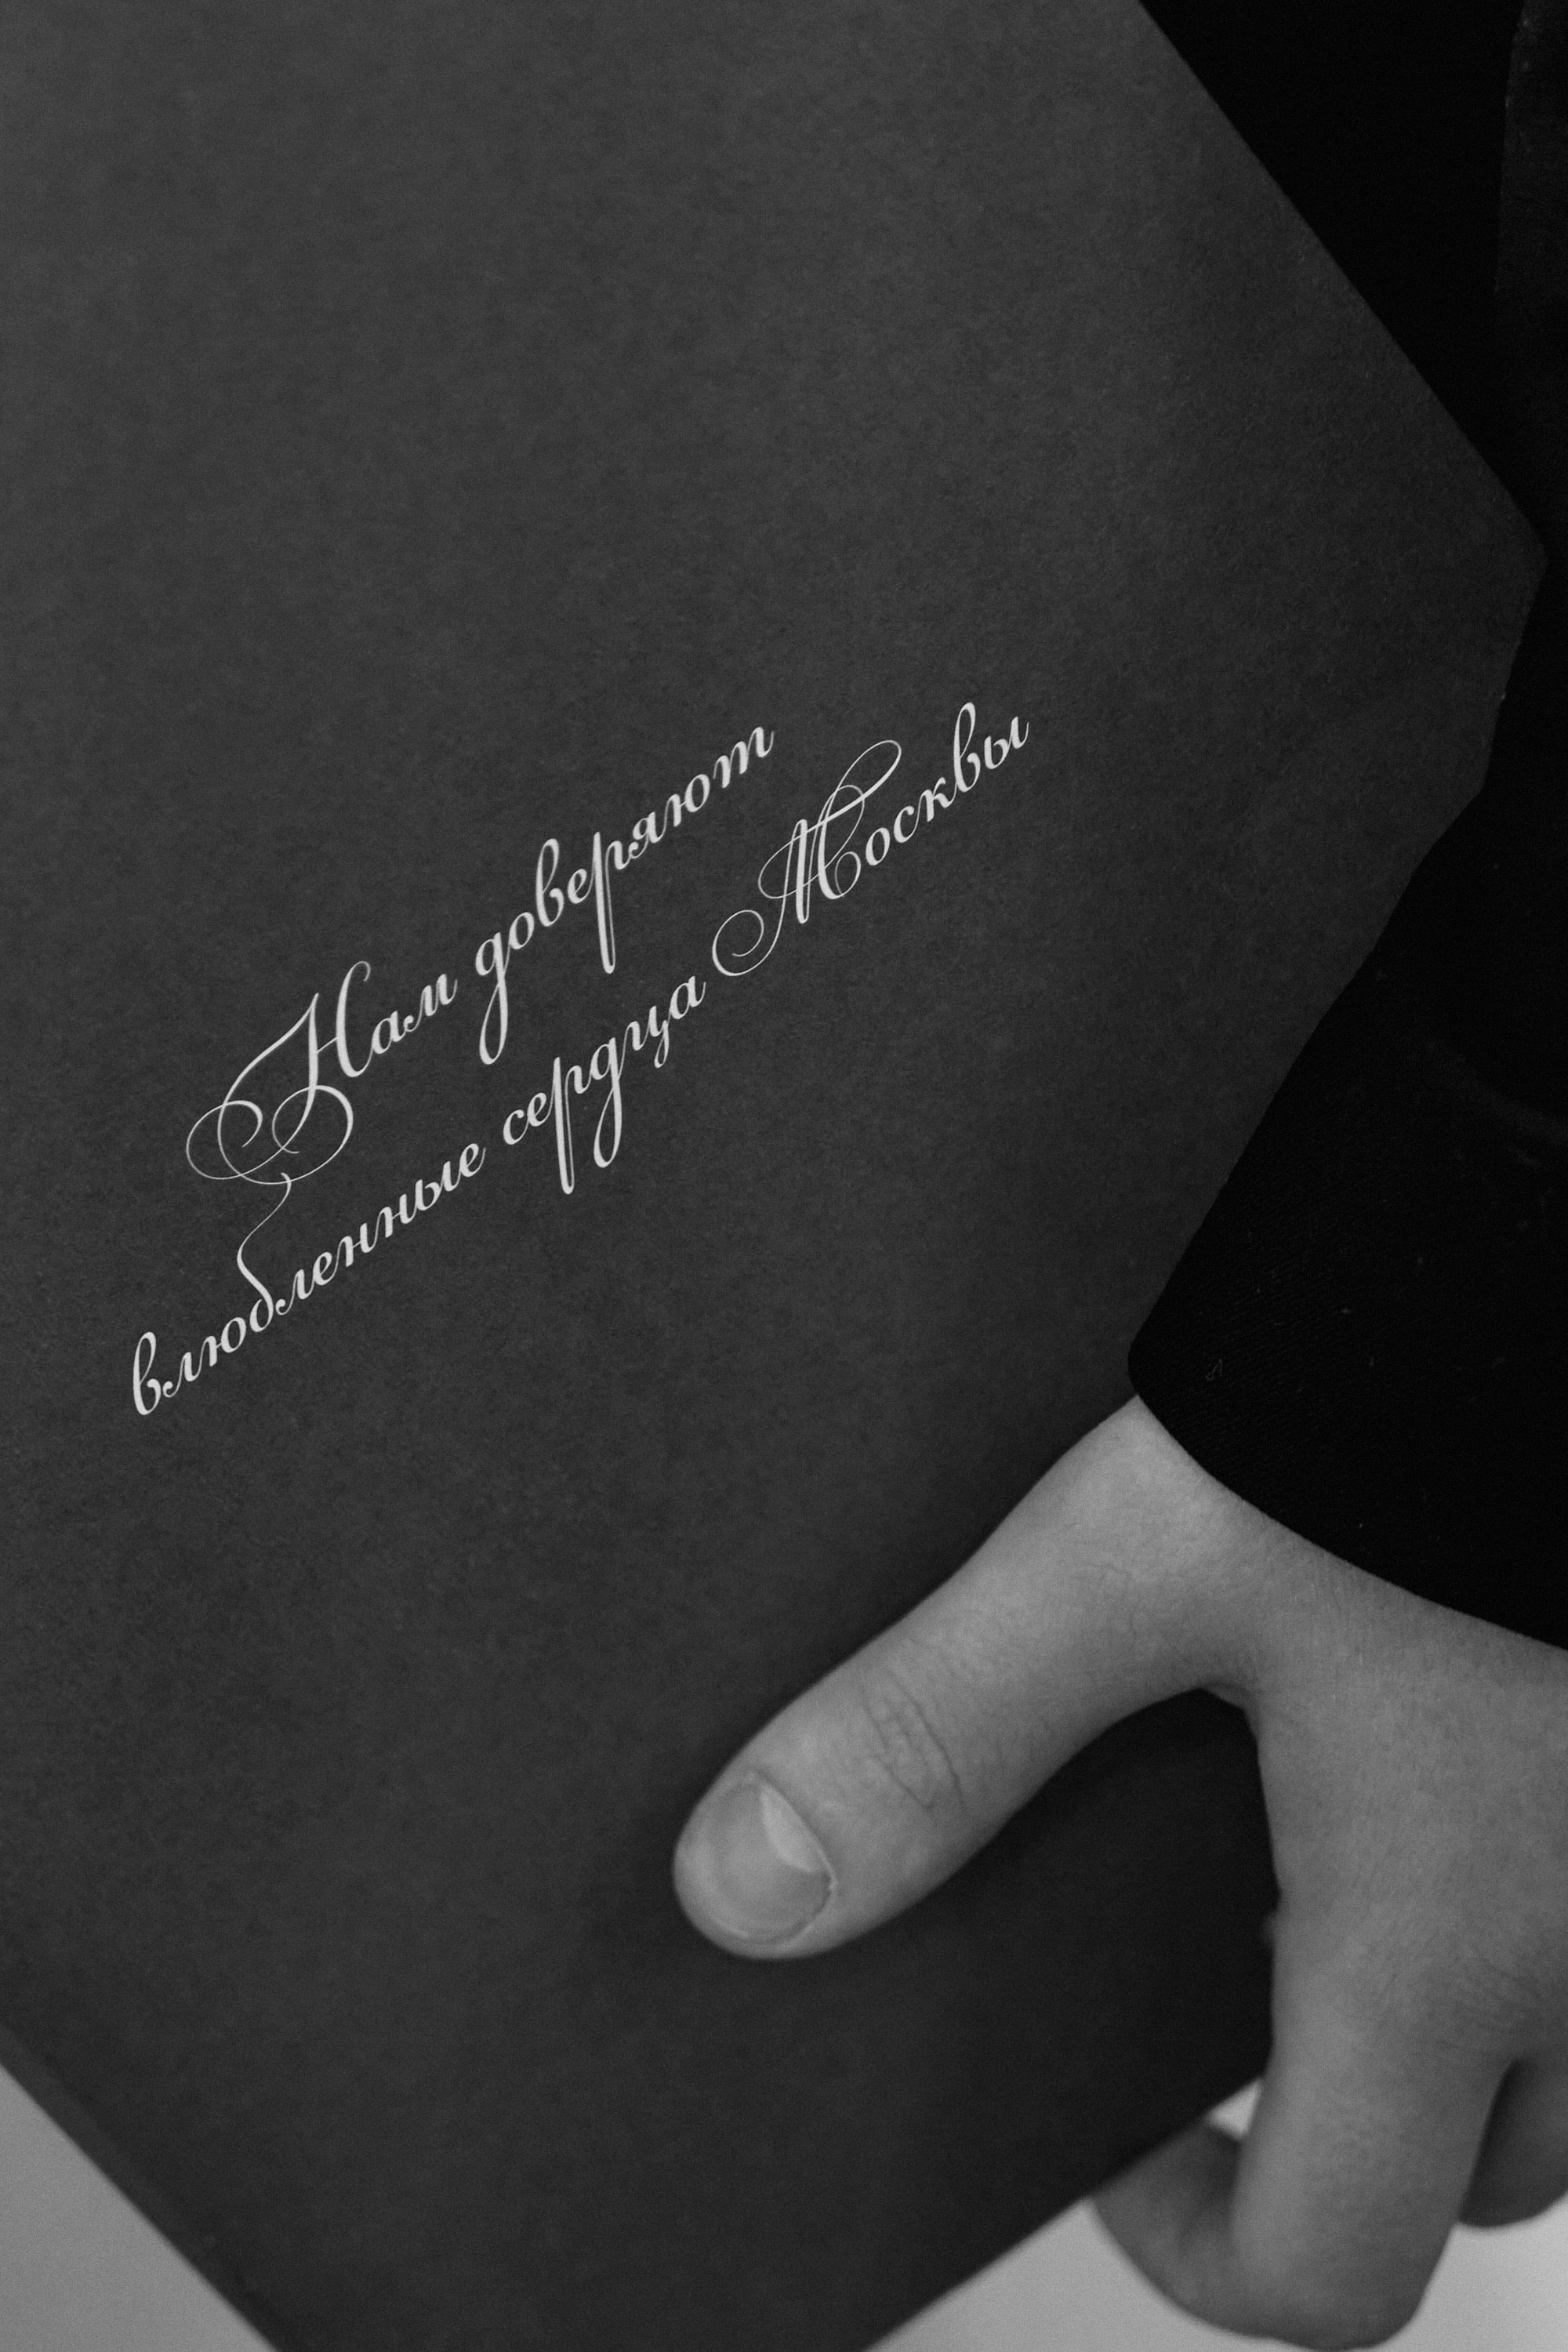 Нам доверяют
влюбленные сердца Москвы